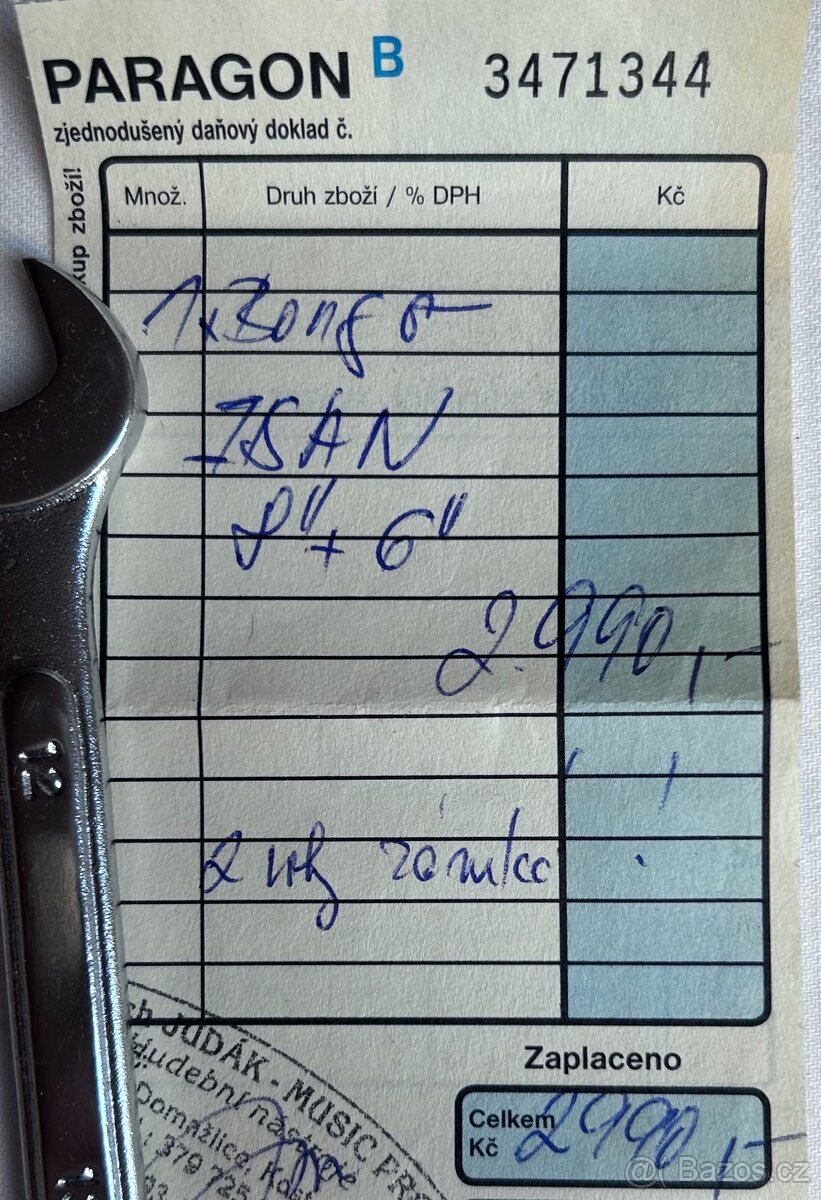 PARAGON B 3471344
zjednodušený daňový doklad č.
kup zboží!
Množ. Druh zboží / % DPH Kč
1x Bongo
ISAN
8" + 6"
2.990,-
2 roky záruka
Zaplaceno
Celkem Kč 2990,-
JUDÁK - MUSIC PRO
Hudební nástroje
Domažlice, Kos
: 379 725
12
@ Bazos.cz